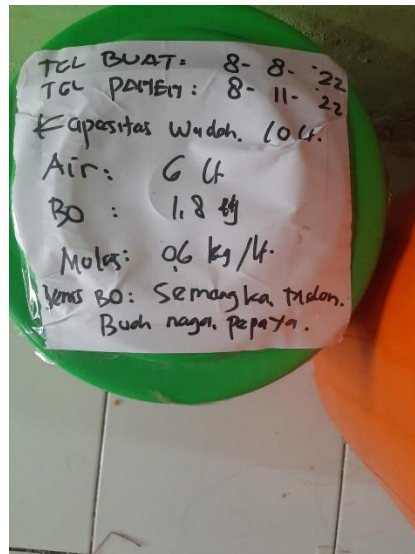 TGL BUAT: 8- 8- '22
TGL PANEN: 8- 11- '22
Kapasitas Wadah. 10 Lt.
Air: 6 Lt
BO : 1,8 kg
Molas: 0,6 kg/Lt.
Jenis BO: Semangka, Melon.
Buah naga. pepaya.